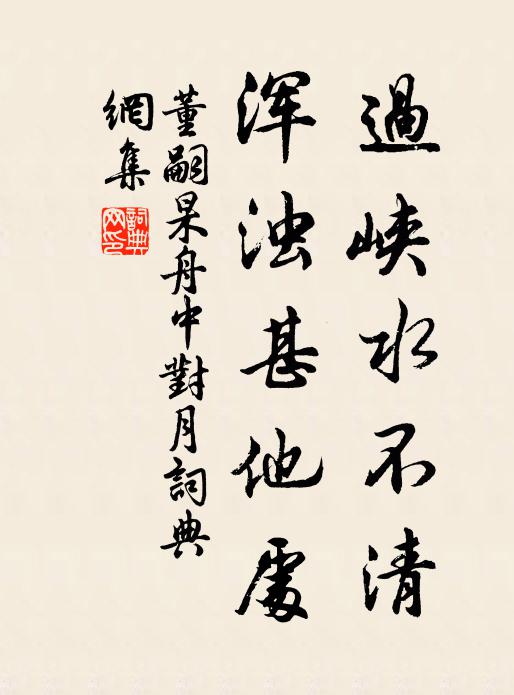 過峡水不清
浑浊甚他處
董嗣杲舟中對月詞典
網集
詞典網印